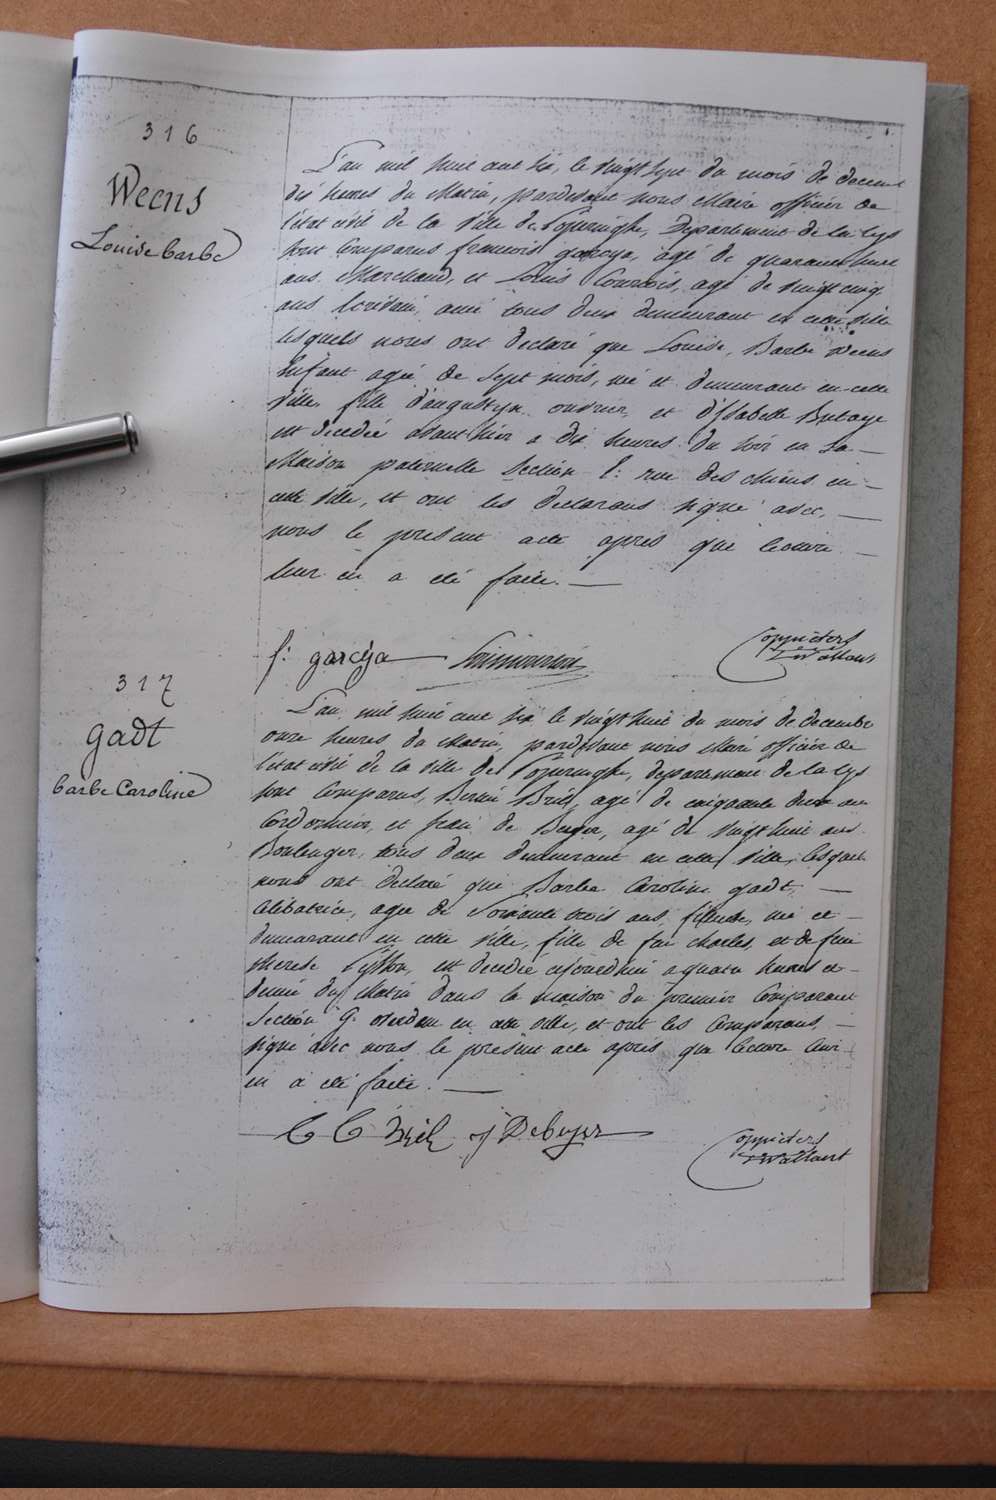 316
Weens
Louise barbe
L'an mil huit cent six, le vingt sept du mois de decemb
dix heures du Matin, pardevant nous Maire officier de
l'état civil de la ville de Poperinghe, Departement de la Lys
sont Comparus francois garcya, agé de quarante huit
ans Marchand, et Louis Courtois, agé de vingt cinq
ans Ecrivain, amis tous deux demeurant en cette ville
lesquels nous ont declaré que Louise, Barbe Weens
Enfant agée de Sept mois, né et demeurant en cette
ville, fille d'augustyn ouvrier, et d'Isabelle
est decedée avant hier a dix heures du soir en La
Maison paternelle Section rue des chiens en
cette ville, et ont les declarans signé avec
nous le present acte après que lecture
leur en a été faite.
f: garcya
Coppieters
't Wallant
317
gadt
barbe Caroline
L'an mil huit cent six le vingt huit du mois de decembre
onze heures du Matin, pardevant nous Maire officier de
l'état civil de la ville de Poperinghe, departement de la Lys
sont Comparus, Bril, agé de cinquante deux ans
Cordonnier, et de Buyser, agé de vingt huit ans
Boulenger, tous deux demeurant en cette ville, Lesquels
nous ont declaré que Barbe Caroline gadt,
Celibatrice, agée de Soixante trois ans, fileuse, né et
demeurant en cette ville, fille de feu charles, et de feue
therese est decedée aujourdhui a quatre heures et
demie du Matin dans la maison du premier Comparant
Section G: overdam en cette ville, et ont les Comparans,
signé avec nous le present acte après que lecture leur
en a été faite.
Bril J Debuyser
Coppieters
't Wallant